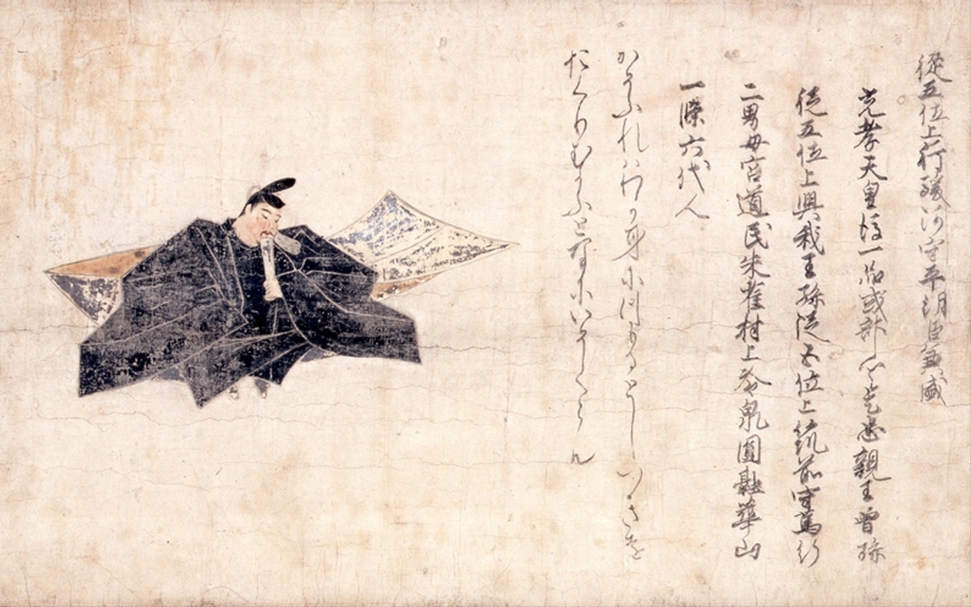 從五位上行駿河守平朝臣兼盛
光孝天皇後一品式部卿是忠親王曽孫
従五位上興我王孫従五位上筑前守篤行
二男母宮道氏朱雀村上冷泉圓融華山
一條六代人
かそふれハわか身につもるとしつきを
おくりむかふとなにいそくらん